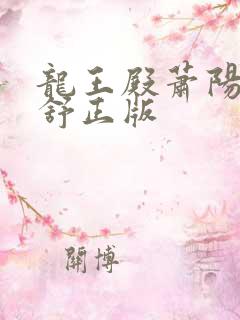 龍王殿蕭陽
舒正版
關博